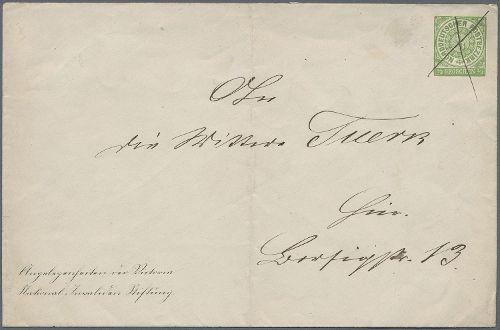 NORDDEUTSCHER POSTBEZIRK
½ GROSCHEN ½
An
die Wittwe Tuerk
Hier.
Borsigstr. 13.
Angelegenheiten der Victoria
National-Invaliden-Stiftung